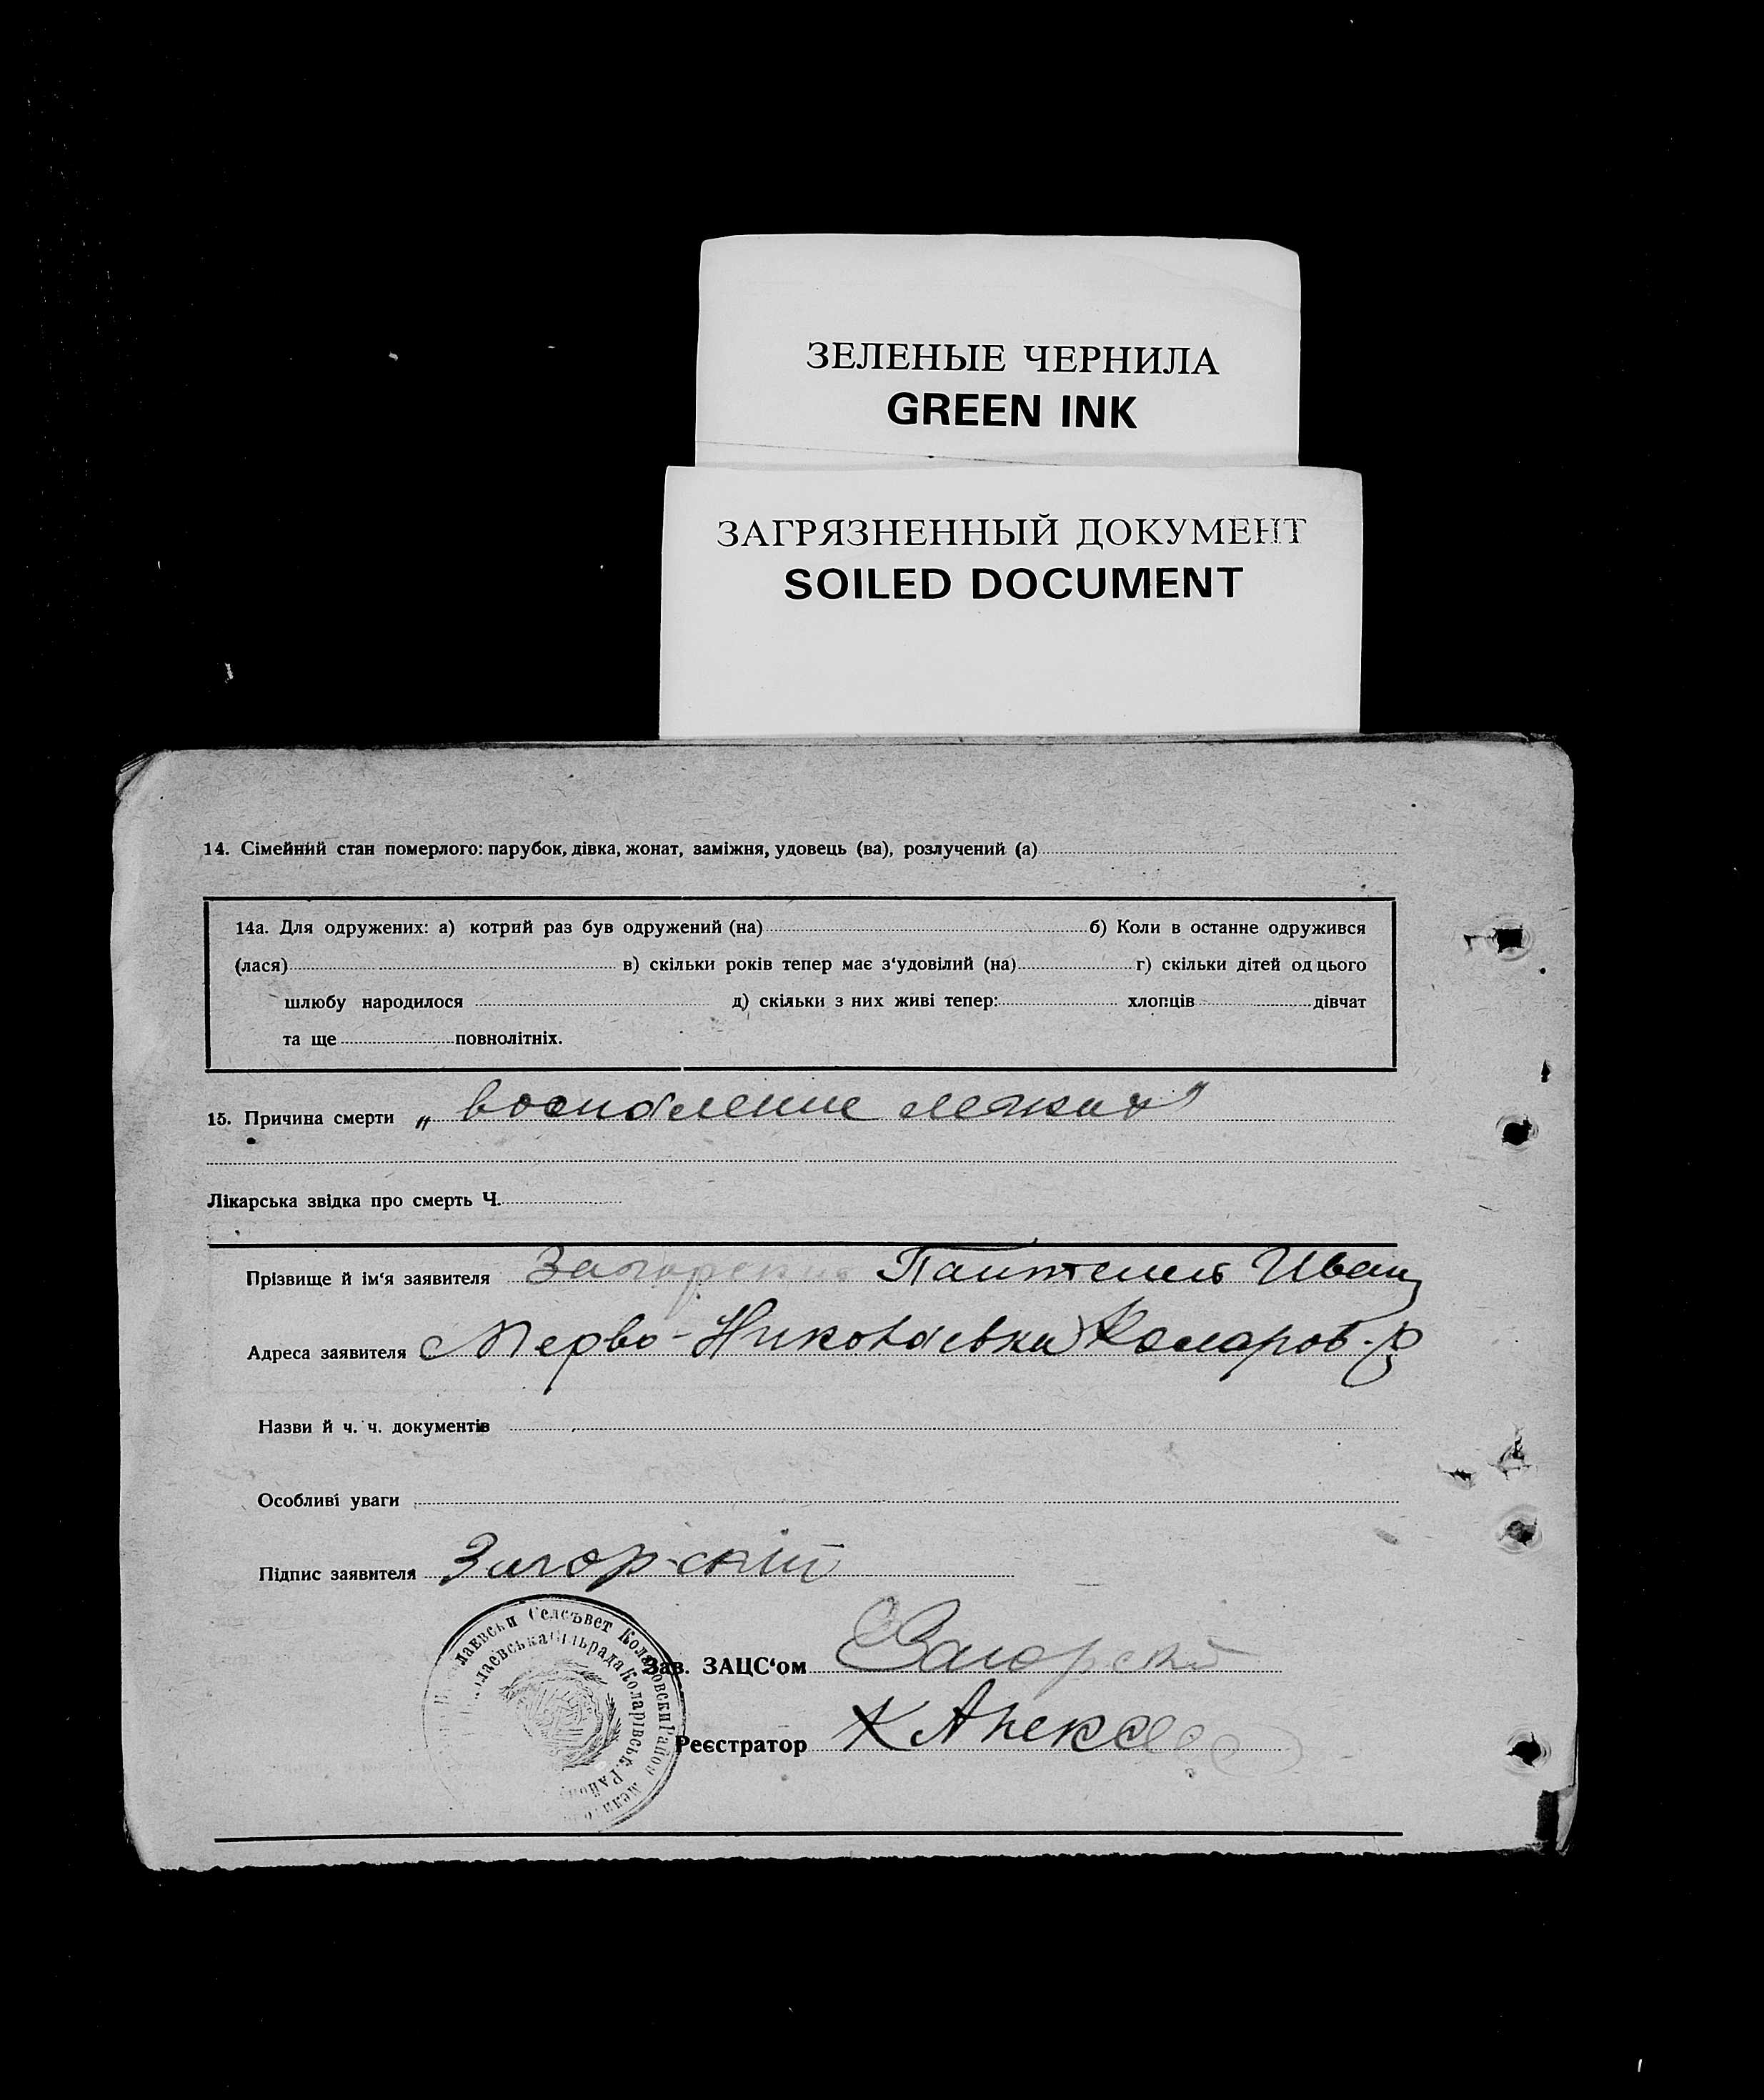 ЗЕЛЕНЫЕ ЧЕРНИЛА
GREEN INK
ЗАГРЯЗНЕННЫЙ ДОКУМЕНТ
SOILED DOCUMENT
14. Сімейний стан померлого: парубок, дівка, жонат, заміжня, удовець (ва), розлучений (а)
14а. Для одружених: а) котрий раз був одружений (на) б) Коли в останне одружився
(лася) в) скільки років тепер має з‘удовілий (на) г) скільки дітей од цього
шлюбу народилося д) скільки з них живі тепер: хлопців дівчат
та ще повнолітніх.
15. Причина смерти „воспаление легких"
Лікарська звідка про смерть Ч.
Прізвище й ім‘я заявителя Загорский Пантелей Иван
Адреса заявителя с Перво-Николаевка Коларов-
Назви й ч. ч. документів
Особливі уваги
Підпис заявителя Загорскій
Селсъвет Коларовски Район
Сільрада Коларівськ. Район
Зав. ЗАЦС‘ом Загорскій
Реєстратор